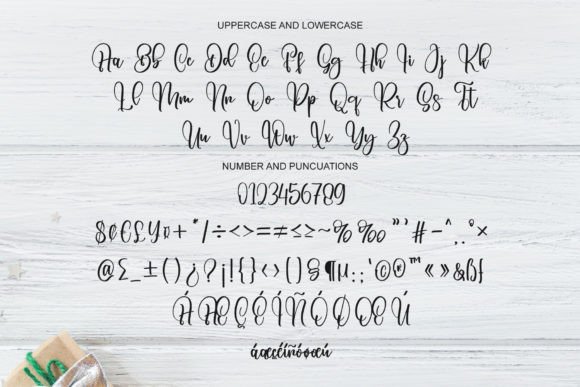 UPPERCASE AND LOWERCASE
Aa Bb Cc Dd Ee Ff Gg Hh Ii Jj Kk
Ll Mm Nn Oo Pp Qq Rr Ss Tt
Uu Vv Ww Xx Yy Zz
NUMBER AND PUNCUATIONS
0123456789
$¢€£¥¤+*/÷<>=≠≤≥~%‰"'#-^.,°×
@Σ_±()¿?¡!{}‹›[]§¶µ:;'©®™«»&ßf
ÁÆÇÉÍÑÓØŒÚ
áæçéíñóøœú